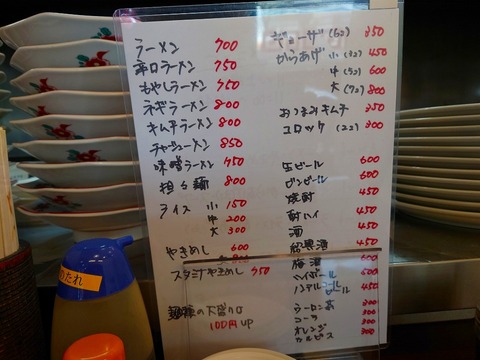 ラーメン 700
辛口ラーメン 750
もやしラーメン 750
ネギラーメン 800
キムチラーメン 800
チャーシューメン 850
味噌ラーメン 750
担々麺 800
ライス 小 150
中 200
大 300
やきめし 600
スタミナやきめし 750
麺類の大盛りは
100円UP
ギョーザ (6コ) 350
からあげ 小 (3コ) 450
中 (5コ) 600
大 (7コ) 800
おつまみキムチ 350
コロッケ (2コ) 300
生ビール 600
ビンビール 600
焼酎 450
酎ハイ 450
酒 450
紹興酒 450
梅酒 450
ハイボール 450
ノンアルコールビール 450
ウーロン茶 300
コーラ 300
オレンジ 300
カルピス 300
のたれ